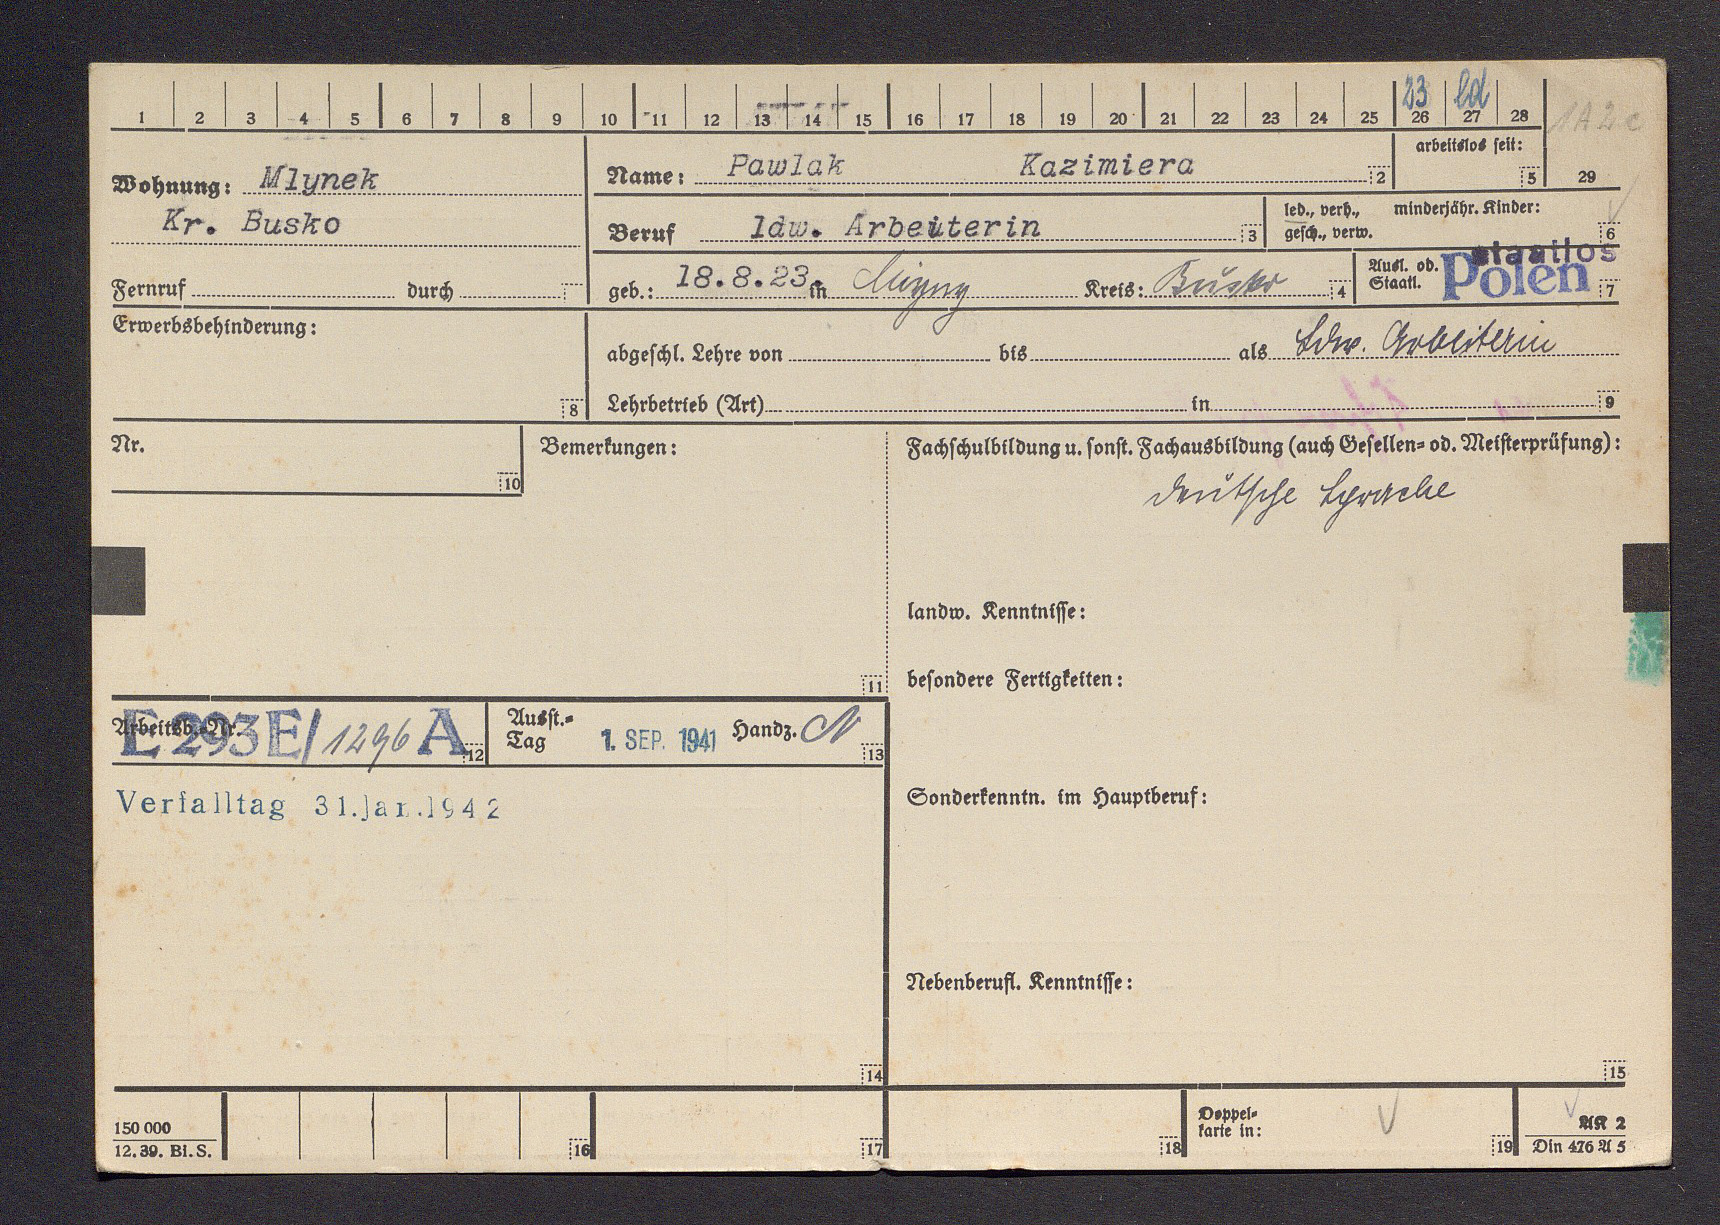 1 2 3 4 5 6 7 8 9 10 11 12 13 14 15 16 17 18 19 20 21 22 23 24 25 26 27 28 29
23 ld
1A2c
Wohnung: Mlynek
Kr. Busko
Name: Pawlak Kazimiera 2
arbeitslos seit: 5
Beruf ldw. Arbeiterin 3
led., verh., gesch., verw.
minderjähr. Kinder: 6
Fernruf durch
geb.: 18.8.23 in Kreis: Busko 4
Ausl. od. Staatl. staatlos Polen 7
Erwerbsbehinderung: 8
abgeschl. Lehre von bis als Ldw. Arbeiterin
Lehrbetrieb (Art) in 9
Nr. 10
Bemerkungen: 11
Fachschulbildung u. sonst. Fachausbildung (auch Gesellen= od. Meisterprüfung):
deutsche Sprache
landw. Kenntnisse:
besondere Fertigkeiten:
Arbeitsb.=Nr. E 293 E/1296 A 12
Ausst.=
Tag 1. SEP. 1941 Handz. N 13
Verfalltag 31.Jan.1942
Sonderkenntn. im Hauptberuf:
Nebenberufl. Kenntnisse:
14
15
150 000
12. 39. Bi. S.
16
17
18
Doppel=
karte in:
19
AK 2
Din 476 A 5